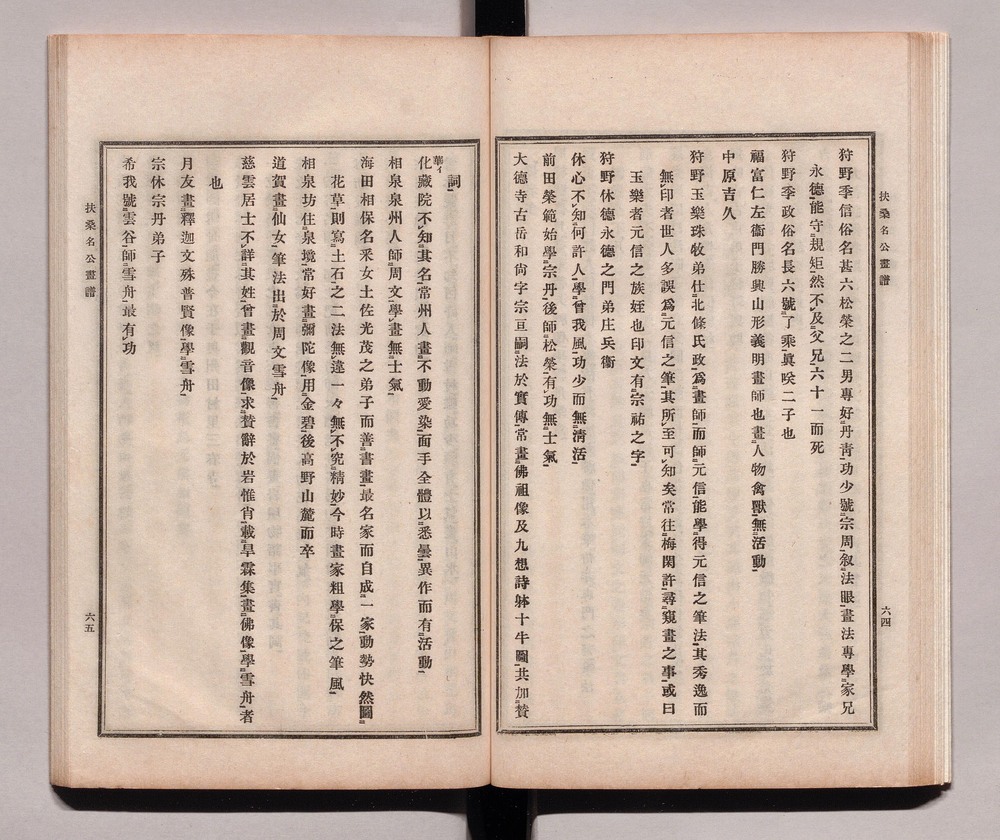 扶桑名公畫譜
六四
狩野季信俗名甚六松榮之二男專好丹靑功少號宗周叙法眼畫法專學家兄
永德能守規矩然不及父兄六十一而死
狩野季政俗名長六號了乘眞咲二子也
福富仁左衞門勝興山形義明畫師也畫人物禽獸無活動
中原吉久
狩野玉樂珠牧弟仕北條氏政爲畫師而師元信能學得元信之筆法其秀逸而
無印者世人多誤爲元信之筆其所至可知矣常往梅閑許尋窺畫之事或曰
玉樂者元信之族姪也印文有宗祐之字
狩野休德永德之門弟庄兵衞
休心不知何許人學曾我風功少而無淸活
前田榮範始學宗丹後師松榮有功無士氣
大德寺古岳和尙字宗亘嗣法於實傳常畫佛祖像及九想詩躰十牛圖共加贊
詞
化藏院不知其名常州人畫不動愛染面手全體以悉曇異作而有活動
相泉泉州人師周文學畫無士氣
海田相保名釆女土佐光茂之弟子而善書畫最名家而自成一家動勢快然圖
花草則寫土石之二法無違一々無不究精妙今時畫家粗學保之筆風
相泉坊住泉境常好畫彌陀像用金碧後高野山麓而卒
道賀畫仙女筆法出於周文雪舟
慈雲居士不詳其姓曾畫觀音像求贊辭於岩惟肖載旱霖集畫佛像學雪舟者
也
月友畫釋迦文殊普賢像學雪舟
宗休宗丹弟子
希我號雲谷師雪舟最有功
扶桑名公畫譜
六五